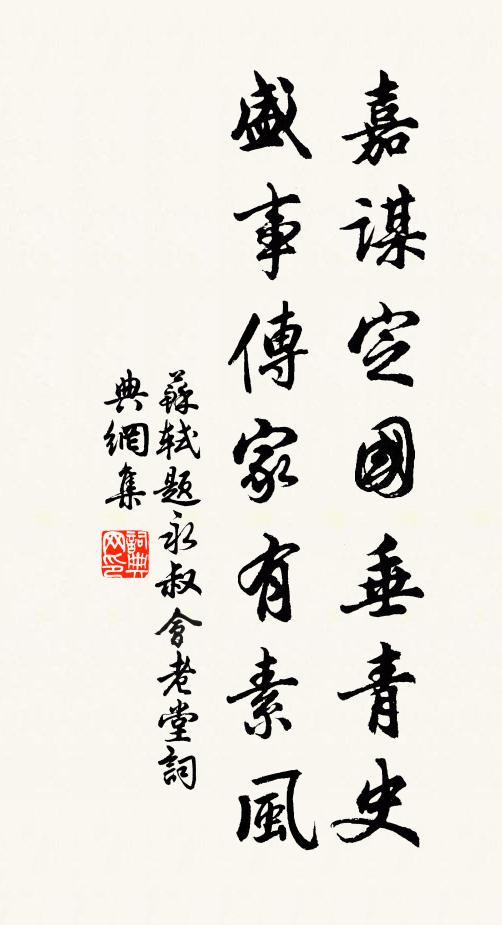 嘉謀定國垂青史
盛事傳家有素風
蘇軾題永叔會老堂詞
典網集
詞典网印